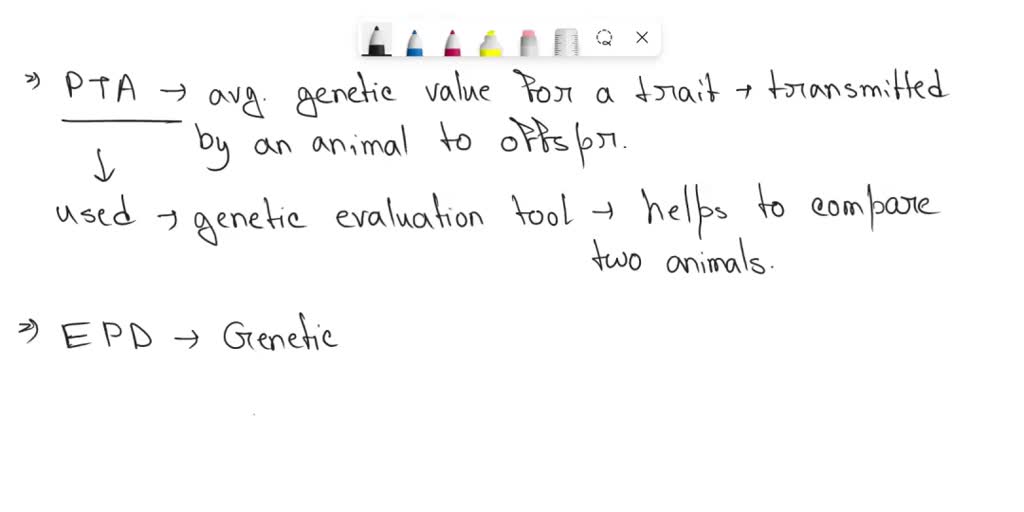 ⇒ PTA → avg. genetic value for a trait → transmitted
by an animal to offspr.
↓
used → genetic evaluation tool → helps to compare
two animals.
⇒ EPD → Genetic